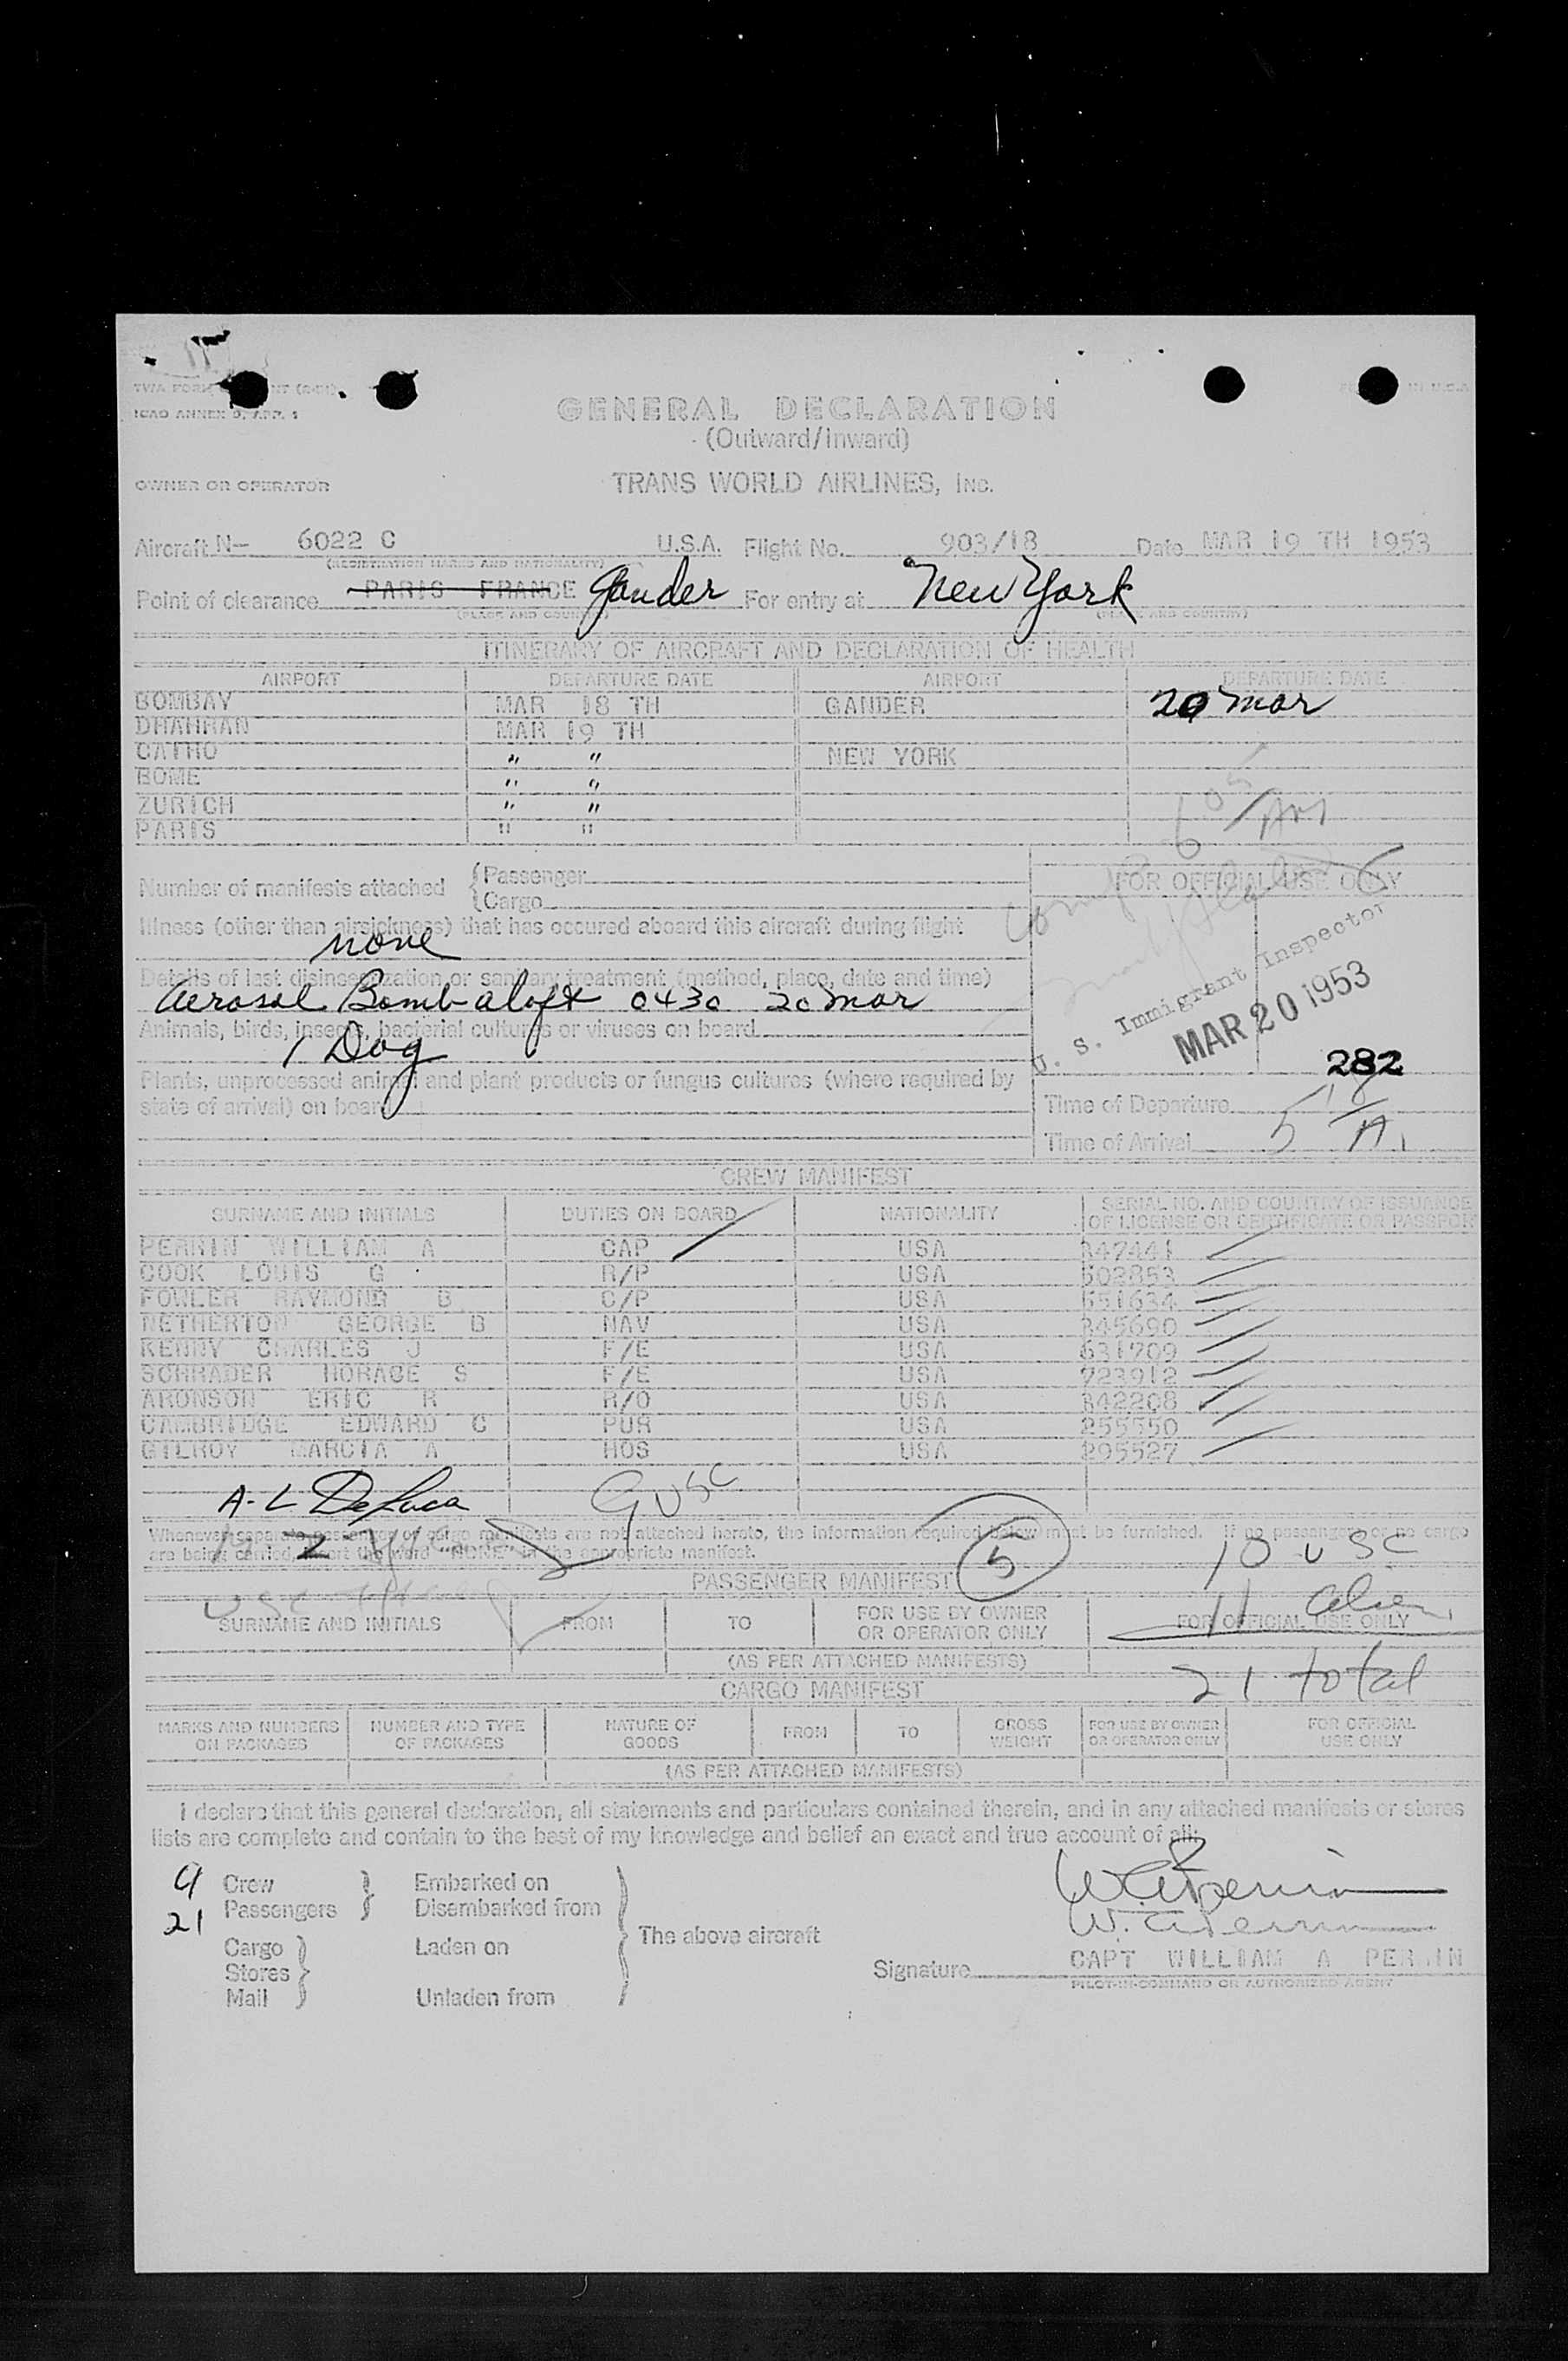 ICAO ANNEX 9, APP. 1
GENERAL DECLARATION
(Outward/Inward)
OWNER OR OPERATOR TRANS WORLD AIRLINES, INC.
Aircraft N- 6022 C U.S.A. Flight No. 903/18 Date MAR 19 TH 1953
(REGISTRATION MARKS AND NATIONALITY)
Point of clearance PARIS FRANCE Gander For entry at New York
(PLACE AND COUNTRY) (PLACE AND COUNTRY)
ITINERARY OF AIRCRAFT AND DECLARATION OF HEALTH
AIRPORT DEPARTURE DATE AIRPORT DEPARTURE DATE
BOMBAY MAR 18 TH GANDER 20 Mar
DHAHRAN MAR 19 TH
CAIRO " " NEW YORK
ROME " "
ZURICH " "
PARIS " "
605/AM
Number of manifests attached { Passenger
Cargo
FOR OFFICIAL USE ONLY
Illness (other than airsickness) that has occured aboard this aircraft during flight
none
Details of last disinsectization or sanitary treatment (method, place, date and time)
Aerosol Bomb aloft 0430 20 Mar
Animals, birds, insects, bacterial cultures or viruses on board
1 Dog
Plants, unprocessed animal and plant products or fungus cultures (where required by
state of arrival) on board
U. S. Immigrant Inspector
MAR 20 1953
282
Time of Departure
Time of Arrival 518/A.
CREW MANIFEST
SURNAME AND INITIALS DUTIES ON BOARD NATIONALITY SERIAL NO. AND COUNTRY OF ISSUANCE
OF LICENSE OR CERTIFICATE OR PASSPOR
PERRIN WILLIAM A CAP USA 347441
COOK LOUIS G R/P USA 502853
FOWLER RAYMOND B C/P USA 651634
NETHERTON GEORGE B NAV USA 345690
KENNY CHARLES J F/E USA 631709
SCHRADER HORACE S F/E USA 723912
ARONSON ERIC R R/O USA 342208
CAMBRIDGE EDWARD C PUR USA 255550
GILROY MARCIA A HOS USA 295527
A-L DeLuca 9 USC
Whenever separate passenger or cargo manifests are not attached hereto, the information required below must be furnished. If no passengers or no cargo
are being carried, insert the word "NONE" in the appropriate manifest.
2 5 10 USC
PASSENGER MANIFEST
11 alien
SURNAME AND INITIALS FROM TO FOR USE BY OWNER
OR OPERATOR ONLY FOR OFFICIAL USE ONLY
(AS PER ATTACHED MANIFESTS)
21 total
CARGO MANIFEST
MARKS AND NUMBERS
ON PACKAGES NUMBER AND TYPE
OF PACKAGES NATURE OF
GOODS FROM TO GROSS
WEIGHT FOR USE BY OWNER
OR OPERATOR ONLY FOR OFFICIAL
USE ONLY
(AS PER ATTACHED MANIFESTS)
I declare that this general declaration, all statements and particulars contained therein, and in any attached manifests or stores
lists are complete and contain to the best of my knowledge and belief an exact and true account of all:
9 Crew Embarked on
21 Passengers Disembarked from
Cargo Laden on The above aircraft
Stores
Mail Unladen from
W A Perrin
W. A Perrin
Signature CAPT WILLIAM A PERRIN
PILOT-IN-COMMAND OR AUTHORIZED AGENT